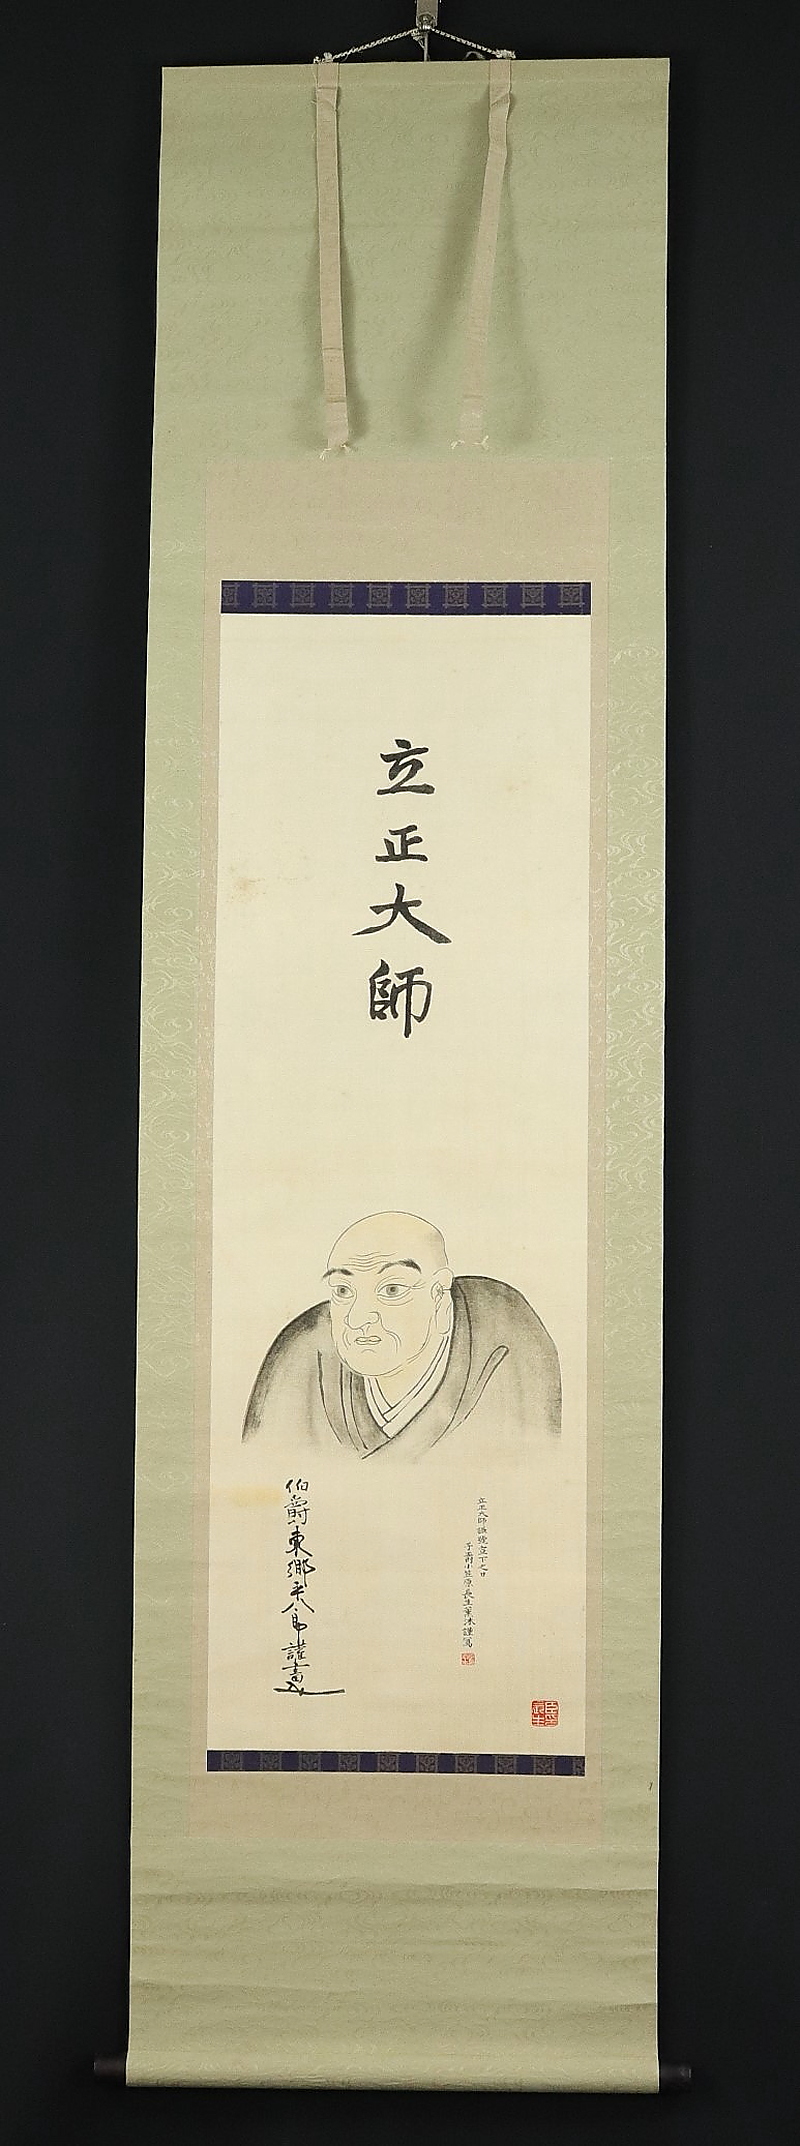 立正大師
立正大師諡號宣下之日
子爵小笠原長生薫沐謹寫
伯爵東郷平八郎謹書
臣長生